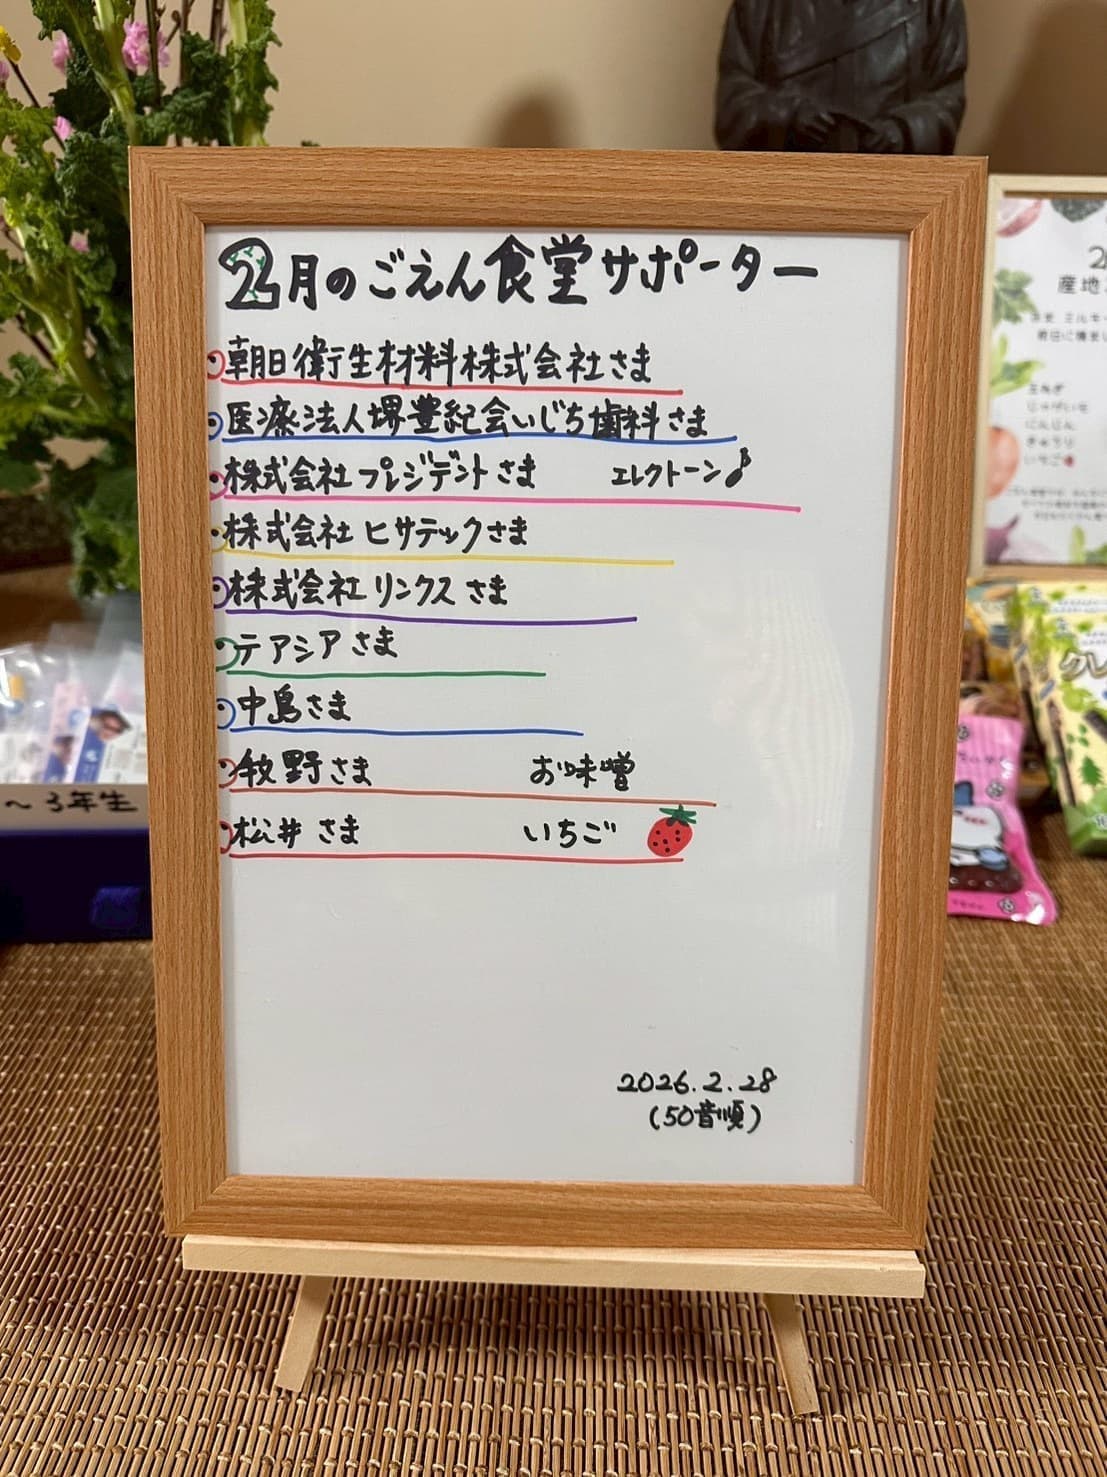 2月のごえん食堂サポーター
朝日衛生材料株式会社さま
医療法人堺豊紀会いじち歯科さま
株式会社プレジデントさま エレクトーン♪
株式会社ヒサテックさま
株式会社リンクスさま
テアシアさま
中島さま
牧野さま お味噌
松井さま いちご
2026.2.28
(50音順)
～3年生
2
産地
玉ねぎ
じゃがいも
にんじん
きゅうり
いちご
クレ